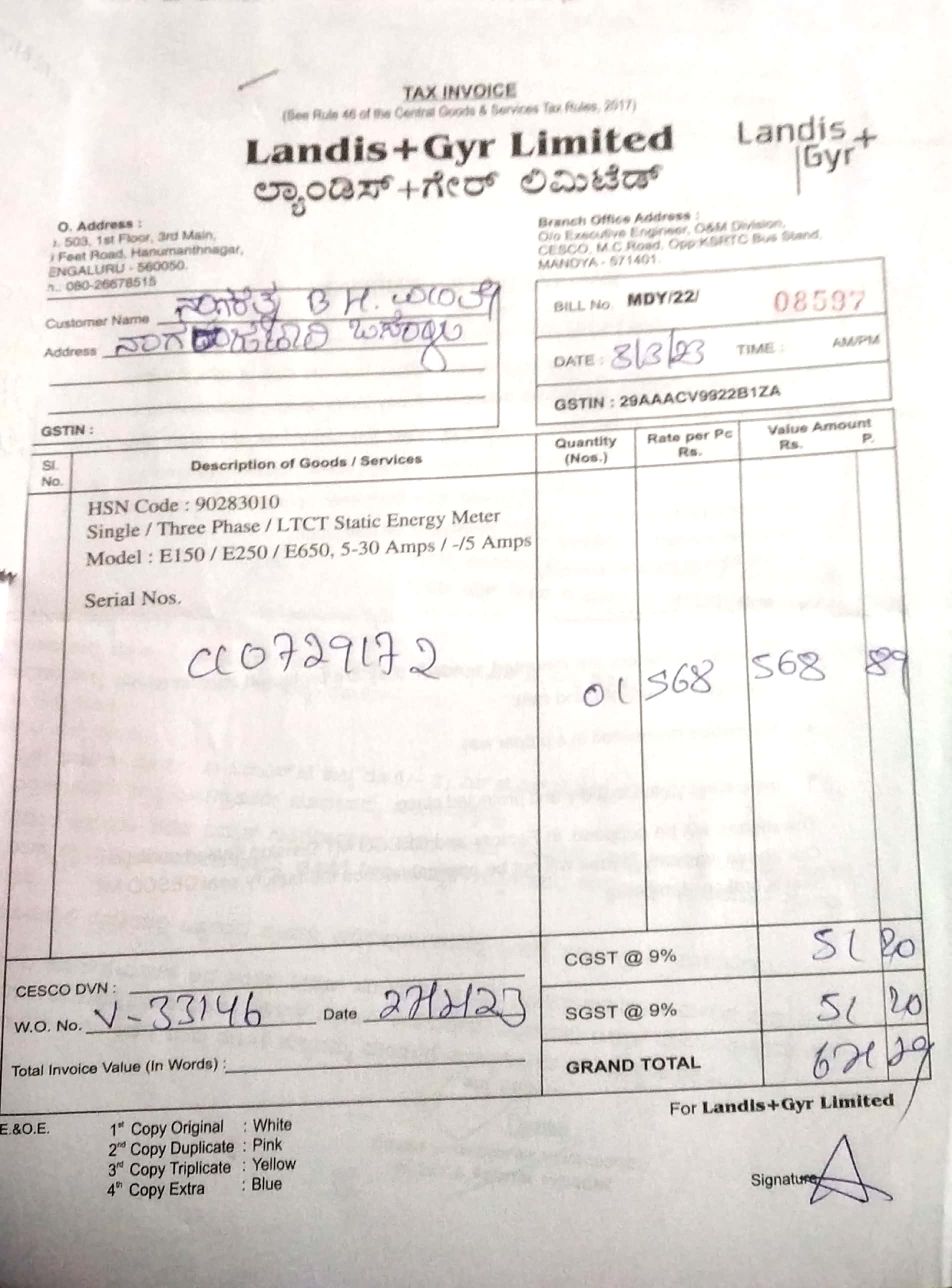 TAX INVOICE
(See Rule 46 of the Central Goods & Services Tax Rules, 2017)
Landis+Gyr Limited
Landis+
Gyr
ಲ್ಯಾಂಡಿಸ್+ಗೇರ್ ಲಿಮಿಟೆಡ್
O. Address :
503, 1st Floor, 3rd Main,
Feet Road, Hanumanthnagar,
ENGALURU - 560050.
080-26678515
Branch Office Address :
O/o Executive Engineer, O&M Division,
CESCO, M.C.Road, Opp:KSRTC Bus Stand,
MANDYA - 571401.
Customer Name B H.
Address
GSTIN :
BILL No. MDY/22/ 08597
DATE : 8/3/23 TIME : AM/PM
GSTIN : 29AAACV9922B1ZA
Sl. No. Description of Goods / Services Quantity (Nos.) Rate per Pc Rs. Value Amount Rs. P.
HSN Code : 90283010
Single / Three Phase / LTCT Static Energy Meter
Model : E150 / E250 / E650, 5-30 Amps / -/5 Amps
Serial Nos.
01 568 568 89
CGST @ 9% 51 20
CESCO DVN :
W.O. No. V-33146 Date
SGST @ 9% 51 20
Total Invoice Value (In Words) :
GRAND TOTAL 671 29
For Landis+Gyr Limited
E.&O.E. 1st Copy Original : White
2nd Copy Duplicate : Pink
3rd Copy Triplicate : Yellow
4th Copy Extra : Blue
Signature